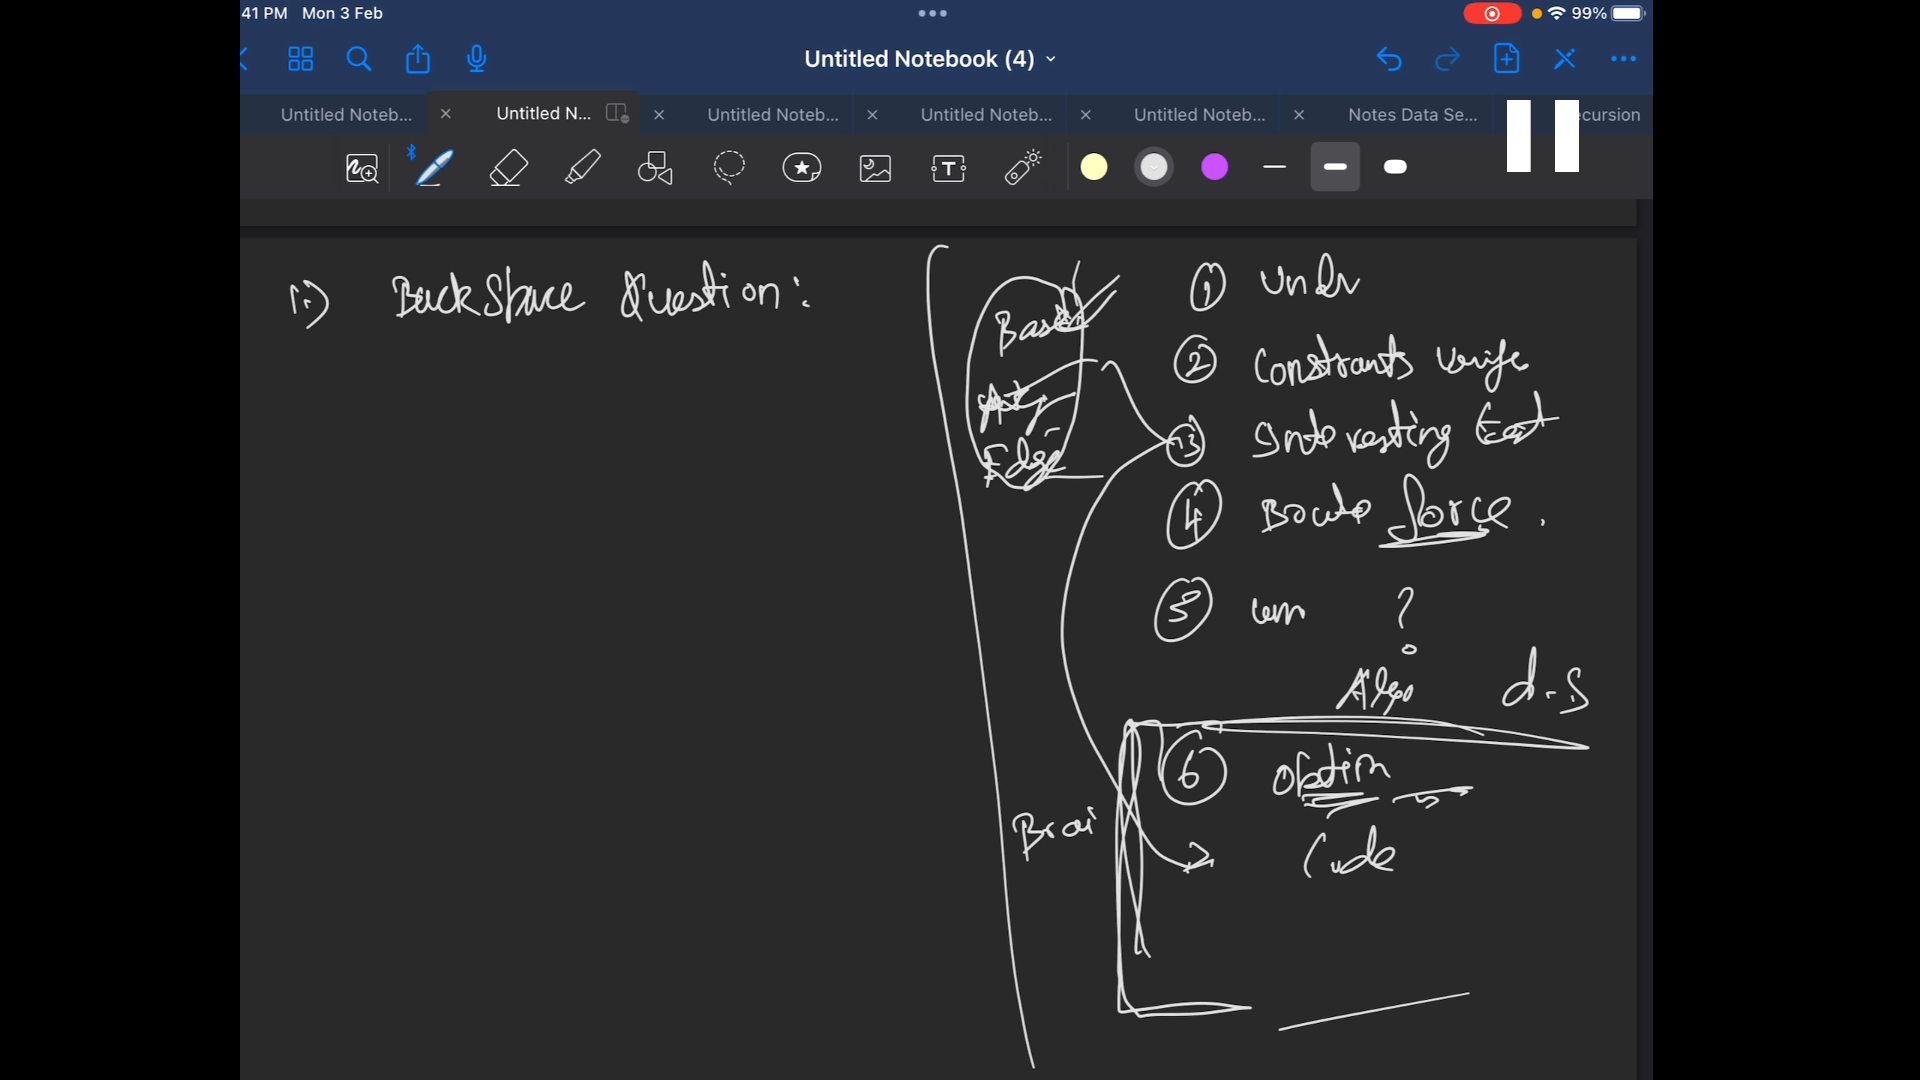 41 PM Mon 3 Feb
99%
Untitled Notebook (4)
Untitled Noteb...
Untitled N...
Untitled Noteb...
Untitled Noteb...
Untitled Noteb...
Notes Data Se...
ecursion
T
ii) BackSpace Question:
Base
Edge
① Undr
② Constrants verify
③ Interesting test
④ Brute force.
⑤ ?
Algo d.S
⑥ optim
Brai
Code